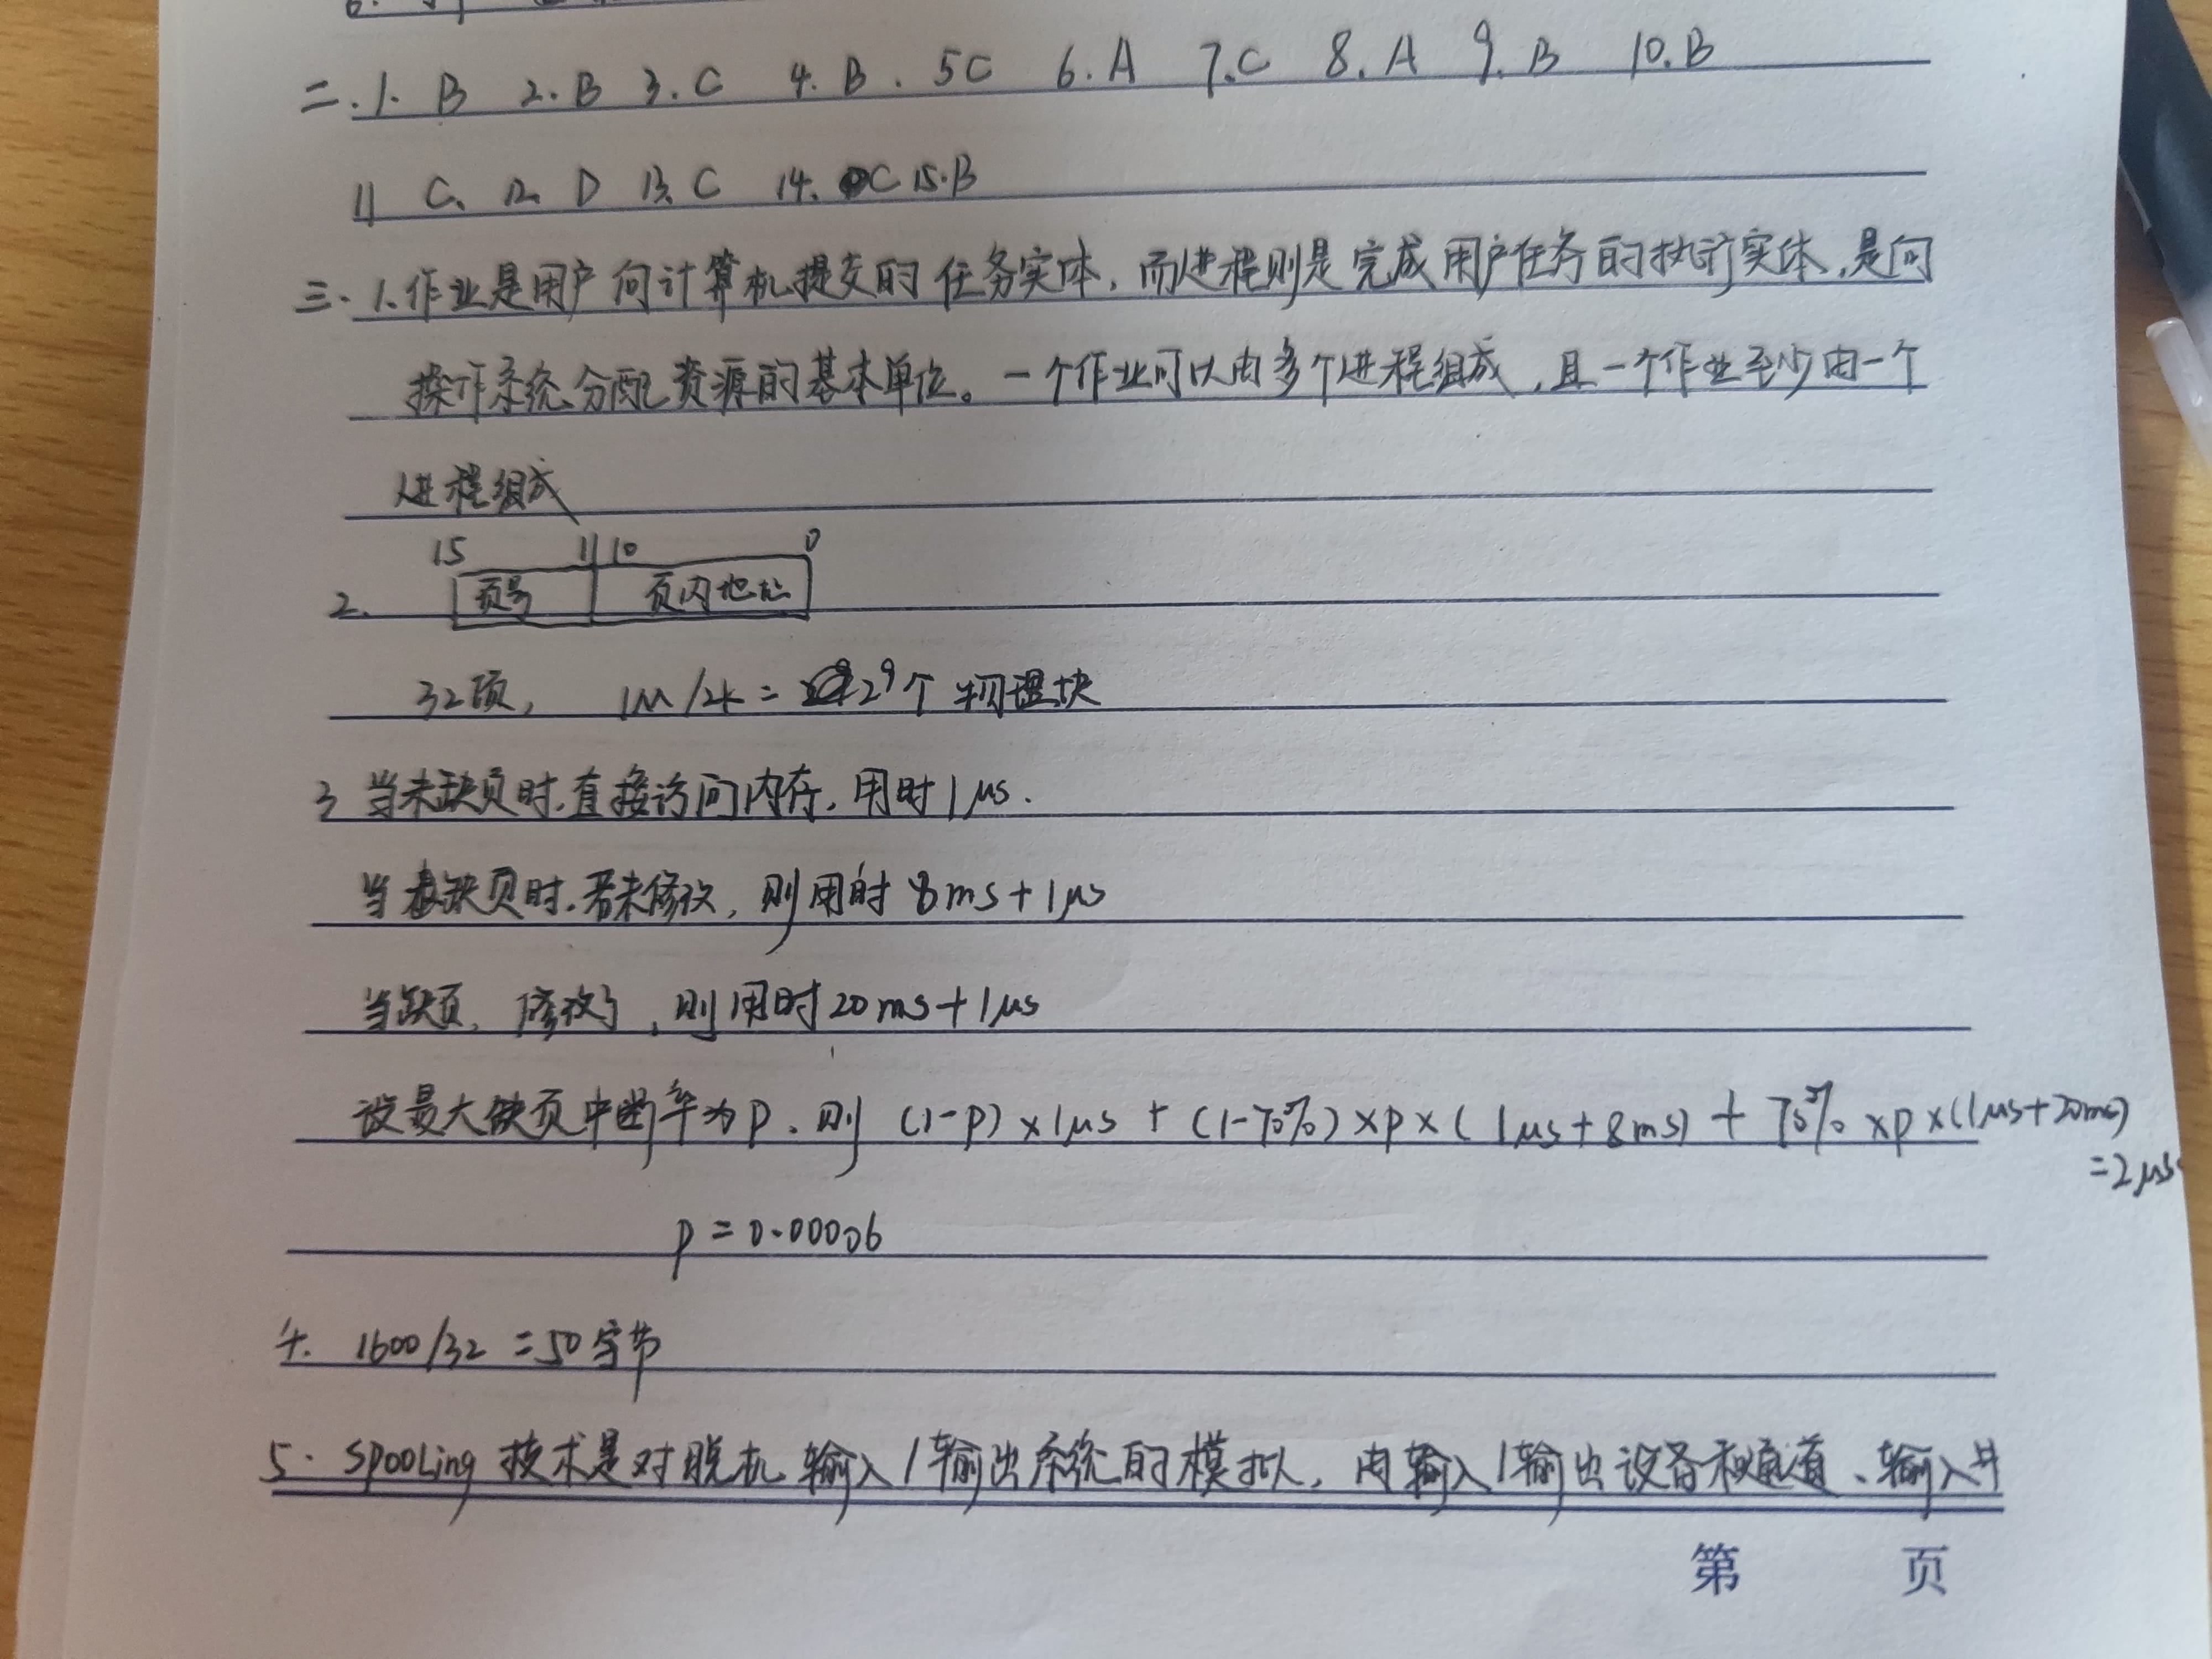 二.1. B 2. B 3. C 4. B. 5C 6. A 7. C 8. A 9. B 10. B
11 C. 12. D 13. C 14. C 15. B
三. 1.作业是用户向计算机提交的任务实体,而进程则是完成用户任务的执行实体,是向
操作系统分配资源的基本单位。一个作业可以由多个进程组成,且一个作业至少由一个
进程组成
15 11 10 0
2. 页号 页内地址
32页, 1M/2k = 2⁹个物理块
3 当未缺页时.直接访问内存,用时1μs.
当缺页时.若未修改,则用时 8ms+1μs
当缺页,修改了,则用时20ms+1μs
设最大缺页中断率为p.则 (1-p)×1μs + (1-70%)×p×(1μs+8ms) + 70%×p×(1μs+20ms)
=2μs
p = 0.00006
4. 1600/32 =50字节
5. SPOOLing 技术是对脱机输入/输出系统的模拟,由输入/输出设备和通道、输入井
第 页